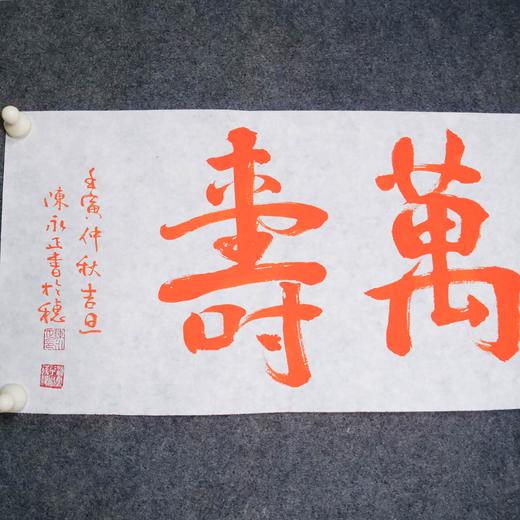 萬壽
壬寅仲秋吉旦
陳永正書於穗